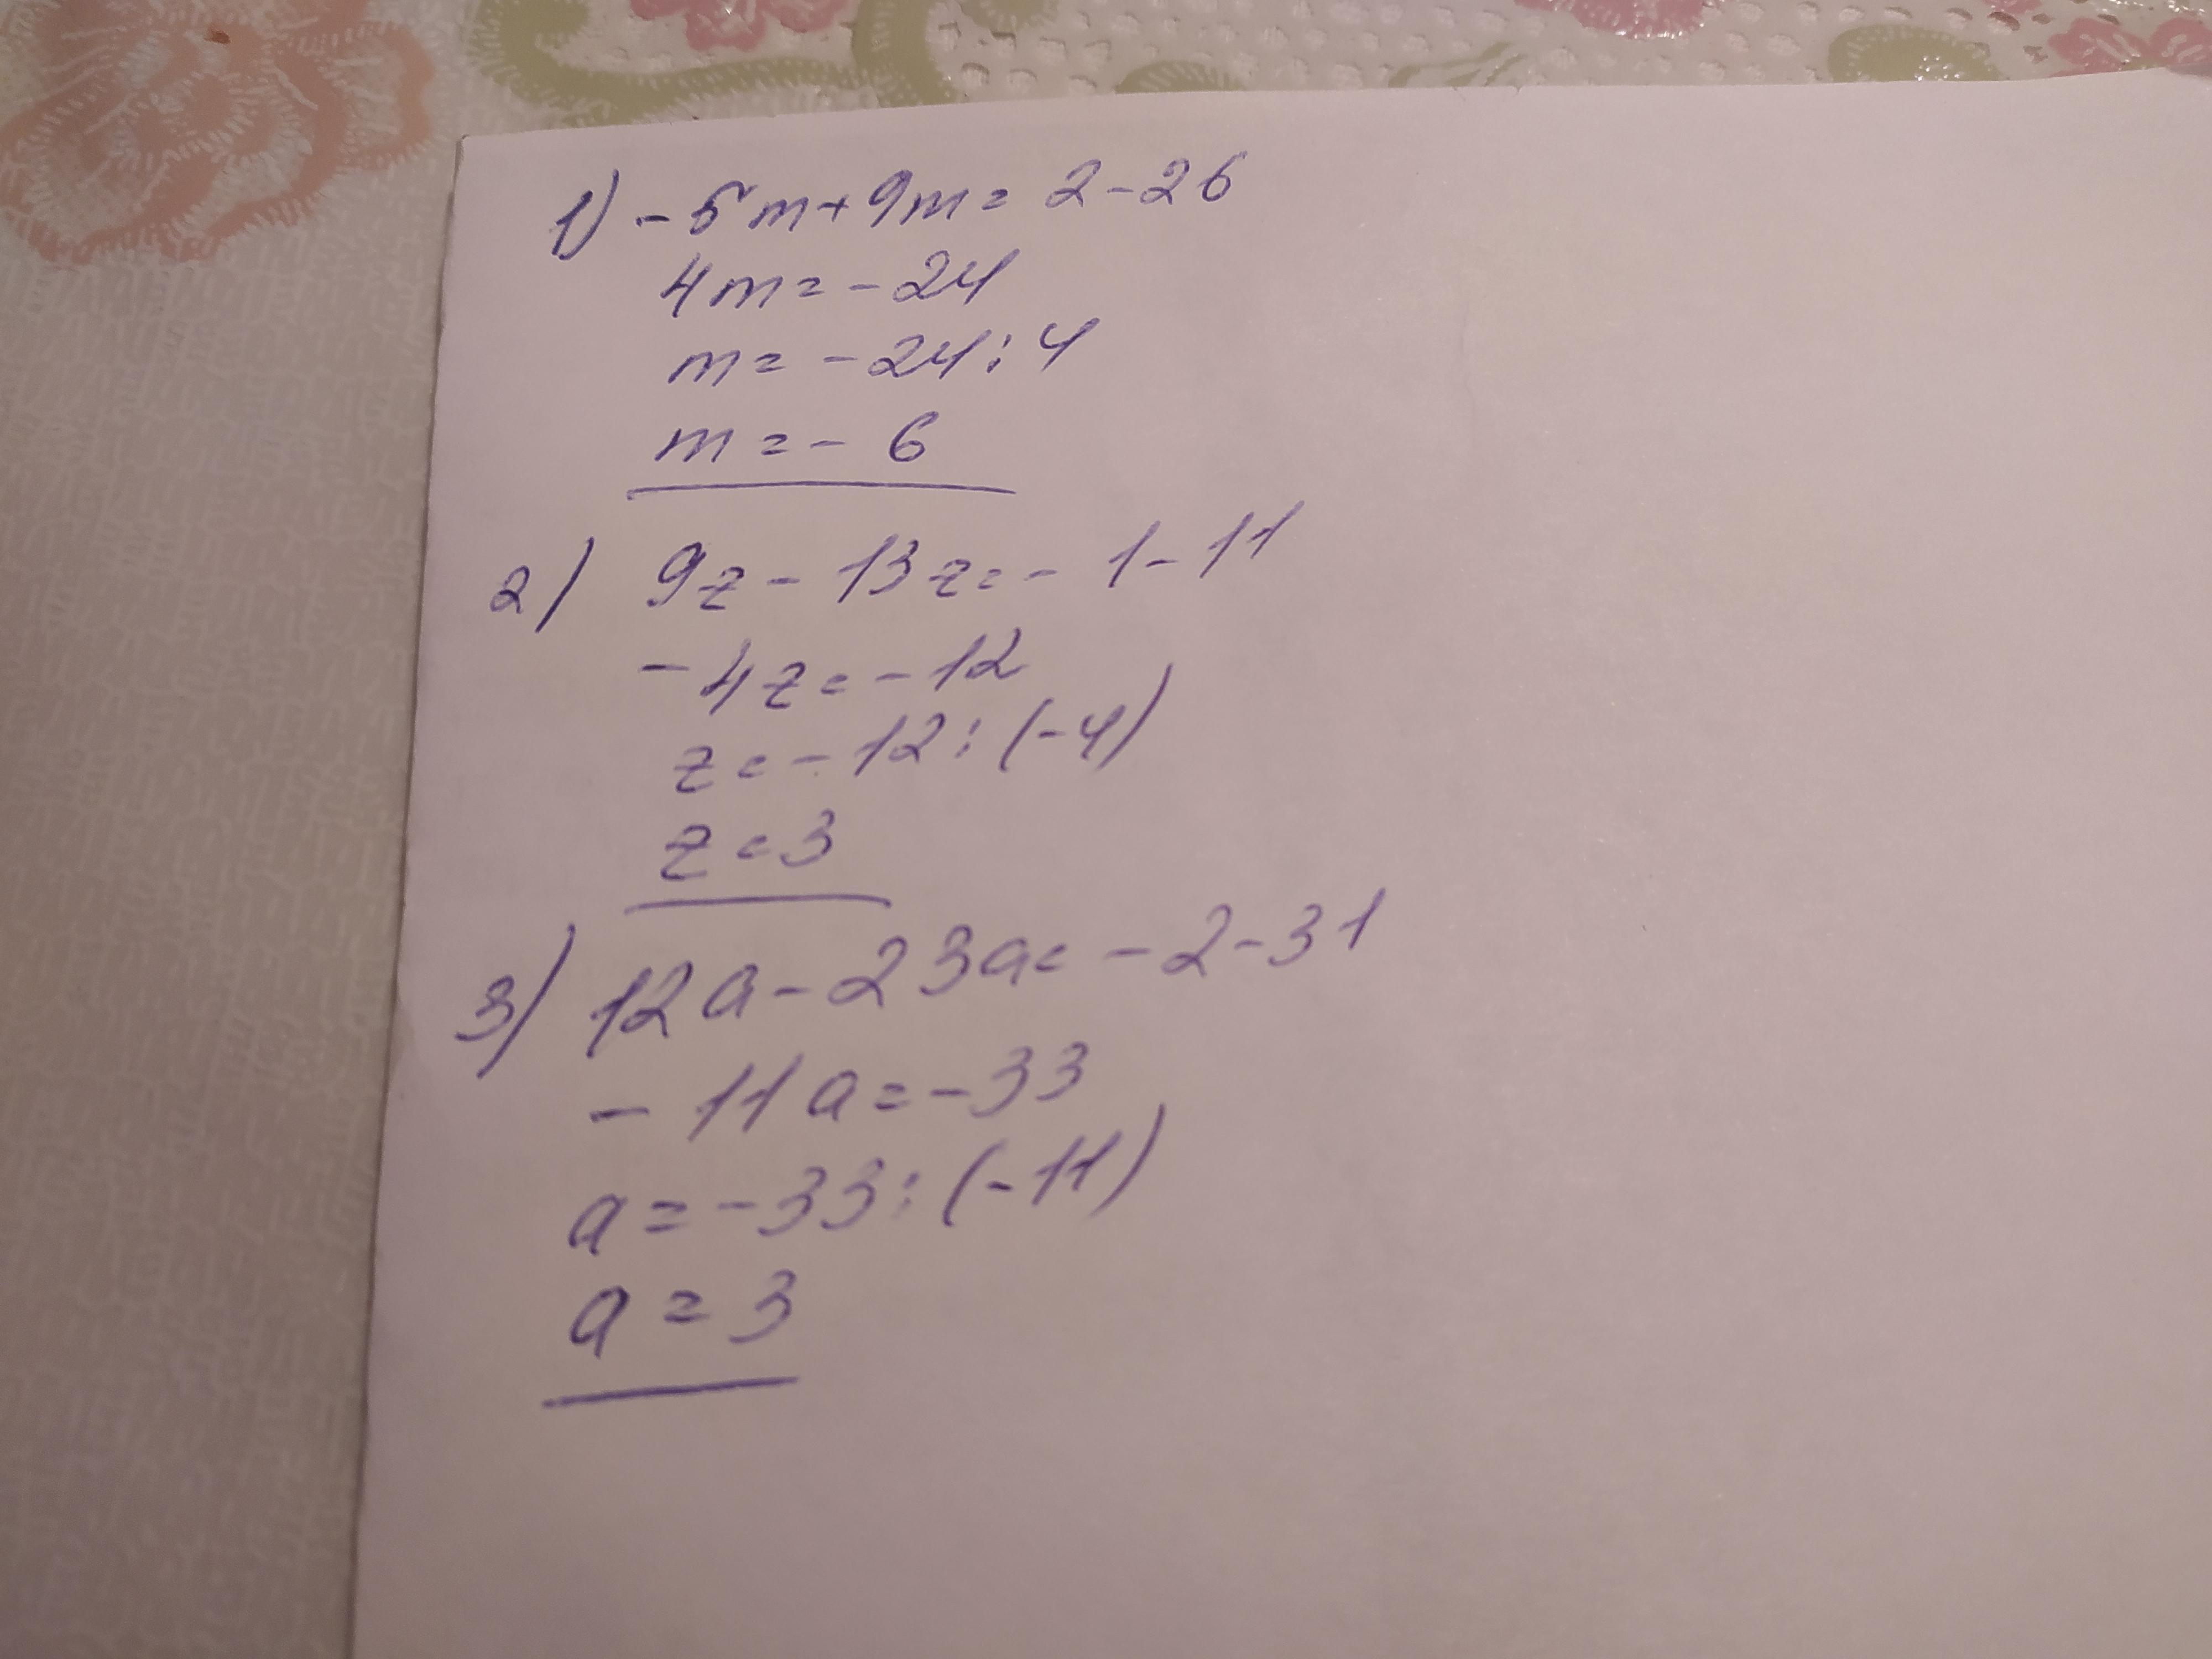 1) -5m+9m=2-26
4m=-24
m=-24:4
m=-6
2) 9z-13z=-1-11
-4z=-12
z=-12:(-4)
z=3
3) 12a-23a=-2-31
-11a=-33
a=-33:(-11)
a=3